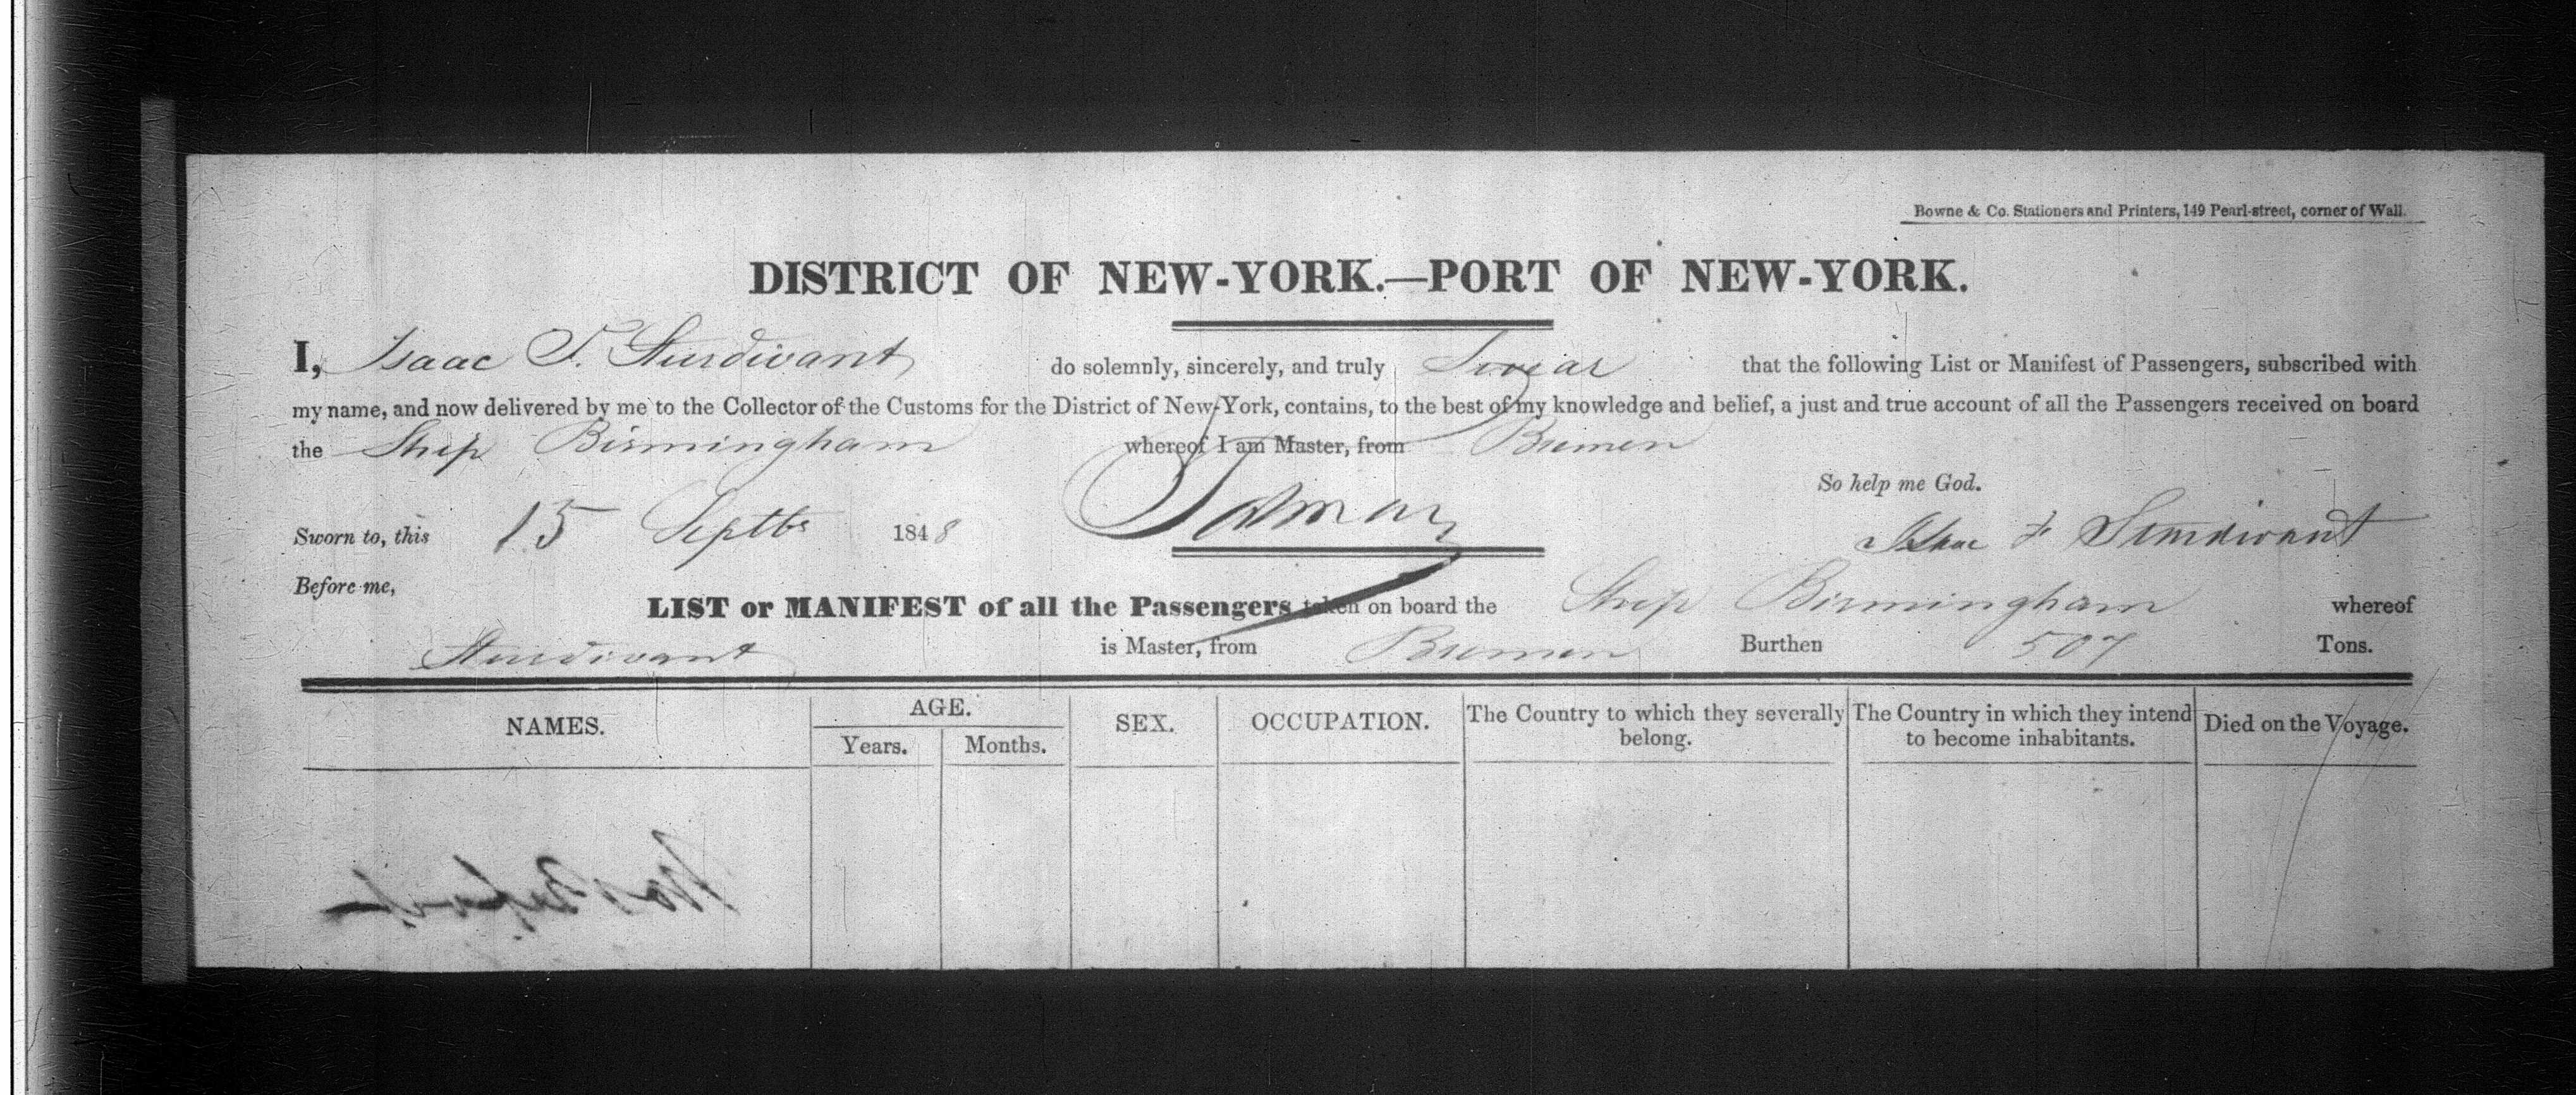 Bowne & Co. Stationers and Printers, 149 Pearl-street, corner of Wall.
DISTRICT OF NEW-YORK.—PORT OF NEW-YORK.
I, Isaac F. Sturdivant do solemnly, sincerely, and truly Swear that the following List or Manifest of Passengers, subscribed with
my name, and now delivered by me to the Collector of the Customs for the District of New-York, contains, to the best of my knowledge and belief, a just and true account of all the Passengers received on board
the Ship Birmingham whereof I am Master, from Bremen
So help me God.
Sworn to, this 15 Septbr 1848 Isaac F Sturdivant
Before me,
LIST or MANIFEST of all the Passengers taken on board the Ship Birmingham whereof
Sturdivant is Master, from Bremen Burthen 507 Tons.
NAMES. AGE. SEX. OCCUPATION. The Country to which they severally belong. The Country in which they intend to become inhabitants. Died on the Voyage.
Years. Months.